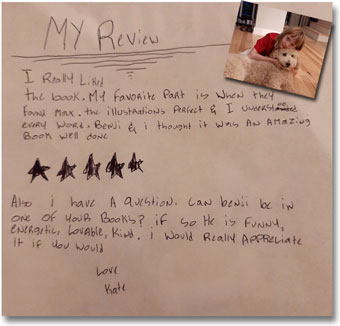 My Review
I Really Liked
the book. My favorite Part is when they
found Max. the illustrations Perfect & I understand
every word. Benji & i thought it was An Amazing
Book well done
Also i have A question. Can benji be in
one of your Books? if so He is funny,
energetic, Lovable, Kind. i would Really Appreciate
It if you would
Love
Kate